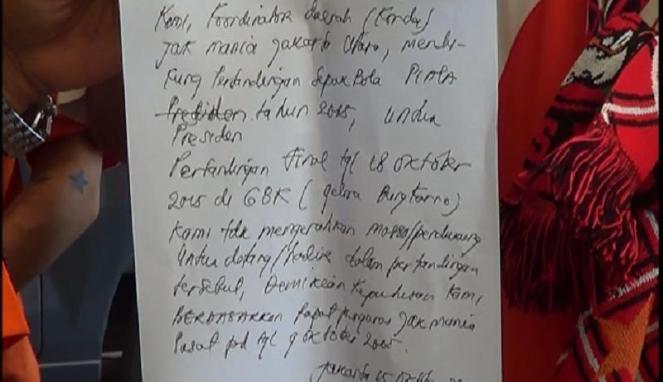 Kami, Koordinator daerah (Korda)
Jak mania Jakarta Utara, mendu-
kung Pertandingan Sepak Bola PIALA
Presiden tahun 2015, untuk
Presiden
Pertandingan Final tgl 18 Oktober
2015 di GBK (Gelora Bung Karno)
Kami tdk mengerahkan massa/pendukung
Untuk datang/hadir dalam pertandingan
tersebut, Demikian Keputusan Kami,
BERDASARKAN Rapat pengurus Jak mania
Pusat pd tgl 9 Oktober 2015.
Jakarta 15 Oktober